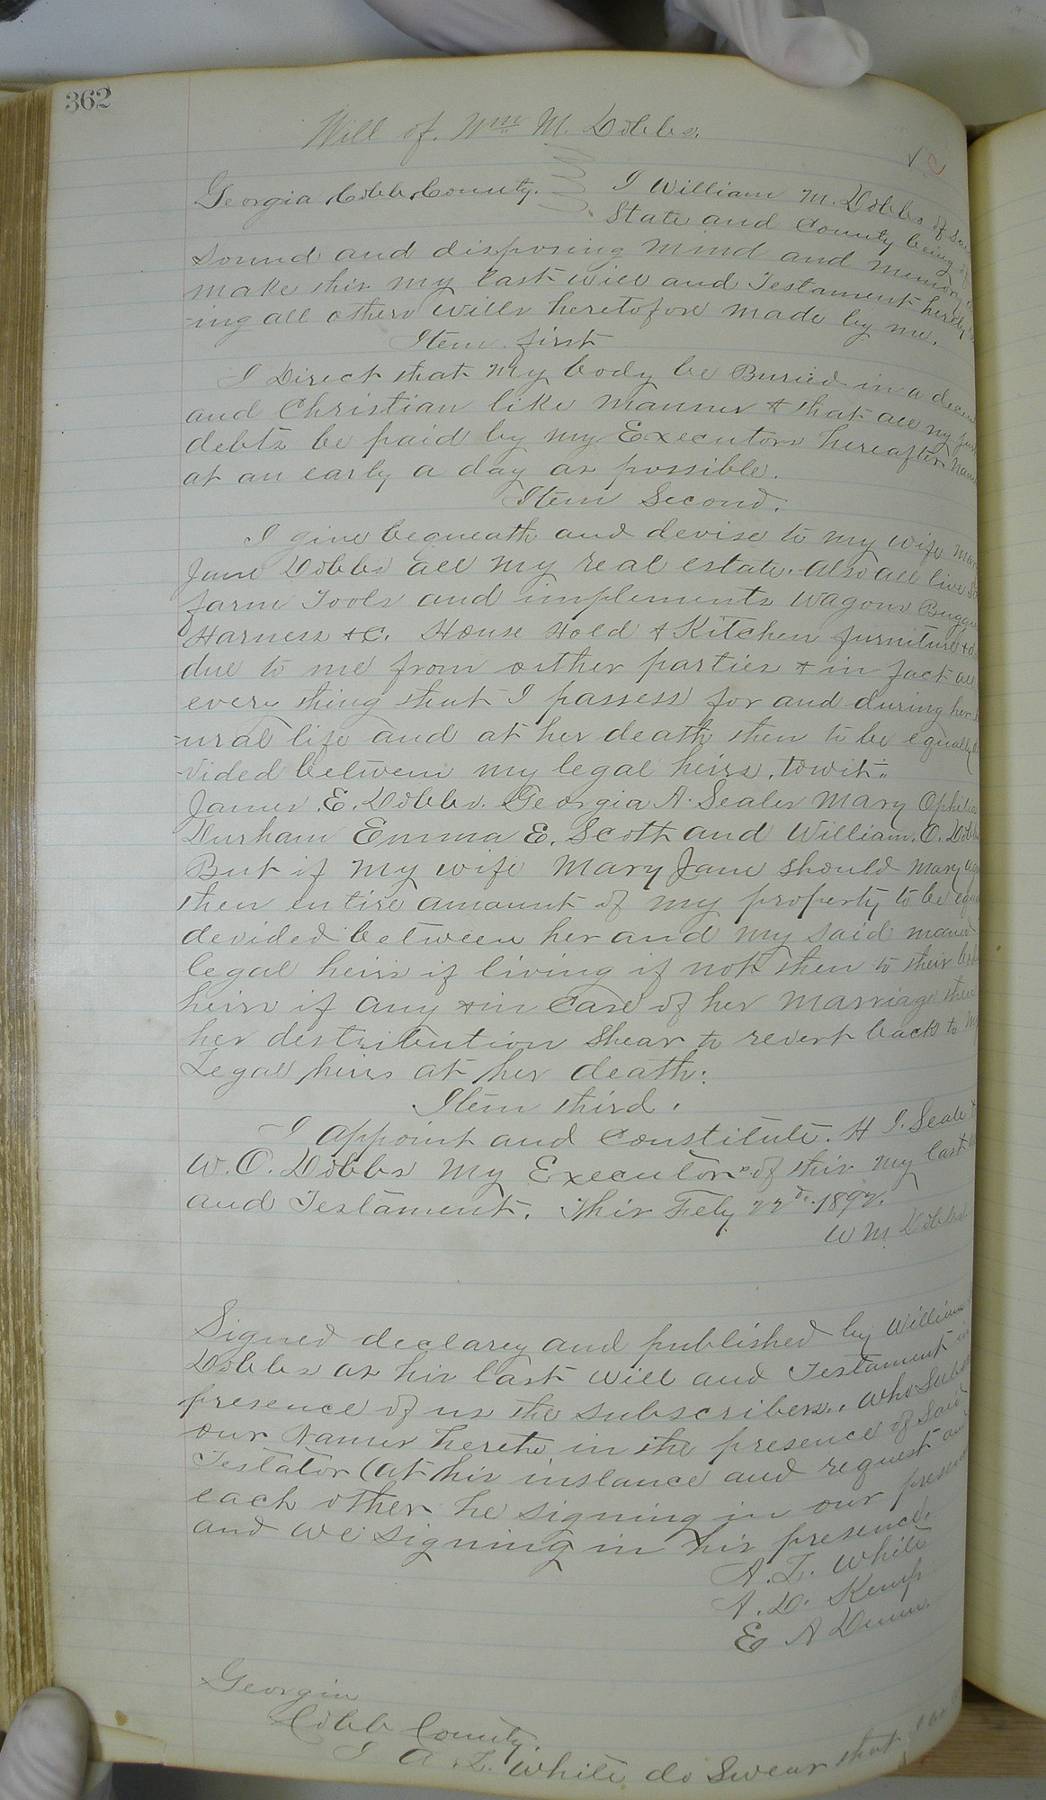 362
Will of Wm M. Dobbs.
Georgia Cobb County. I William M. Dobbs of
State and County being of
sound and disposing mind and memory
make this my last will and Testament hereby
-ing all others Wills heretofore made by me.
Item first
I Direct that my body be Buried in a
and Christian like manner & that all my just
debts be paid by my Executors hereafter
at an early a day as possible.
Item Second.
I give bequeath and devise to my wife
Jane Dobbs all my real estate. Also all live
farm Tools and implements Wagons
Harness &C. House Hold & Kitchen furniture
due to me from other parties & in fact all
every thing that I passess for and during her
-ural life and at her death then to be equally
-vided between my legal heirs, towit:
James E. Dobbs. Georgia A. Seales Mary
Durham Emma E. Scott and William. O.
But if my wife Mary Jane should mary
then entire amount of my property to be
devided between her and my said
legal heirs if living if not then to their
heirs if any & in Case of her marriage then
her distribution Shear to revert back to
Legal heirs at her death.
Item third.
I appoint and Constitute. H I. Seale
W. O. Dobbs my Executors of this my last
and Testament. This Feby 22d 1892.
W M Dobbs
Signed declarey and published by William
Dobbs as his last will and Testament in
presence of us the subscribers. who
our Names hereto in the presence of said
Testator (at his instance and request and
each other he signing in our
and we signing in his presence.
A. L. White
A. D. Kemp
E A Dunn.
Georgia
Cobb County.
I A. L. White do Swear that I